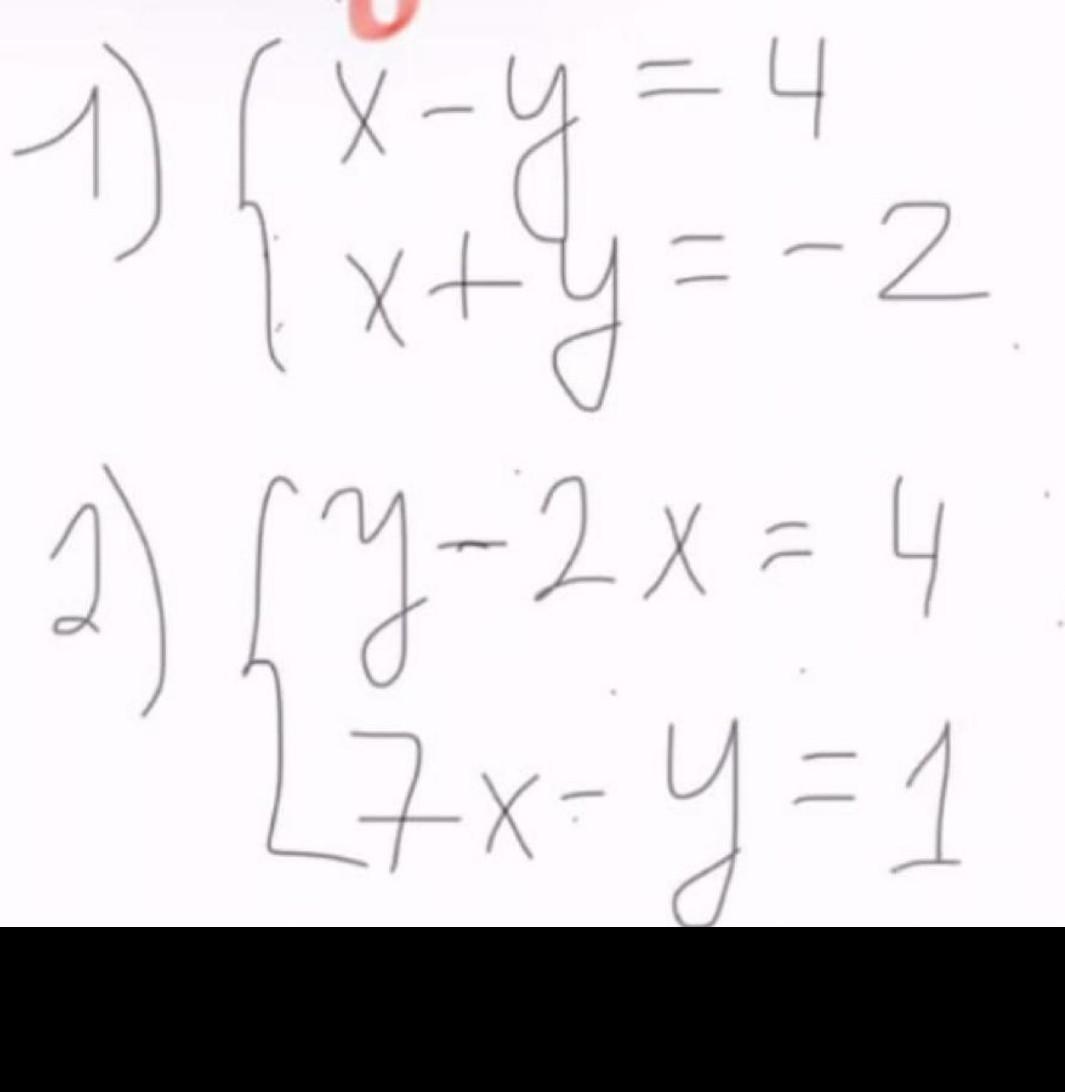 1) { x - y = 4
x + y = - 2
2) { y - 2x = 4
7x - y = 1